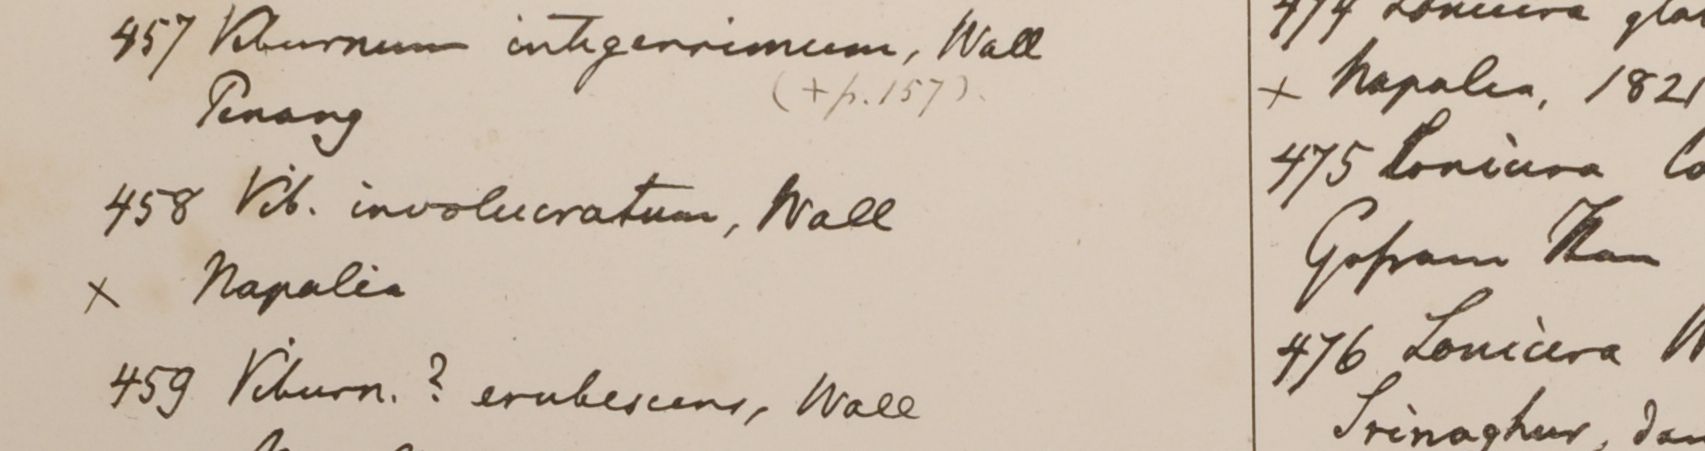 457 Viburnum integerrimum, Wall
(+ p. 157).
Penang
458 Vib. involucratum, Wall
x Napalia
459 Viburn. ? erubescens, Wall
474 Lonicera
x Napalia, 1821
475 Lonicera
476 Lonicera
Srinaghur,